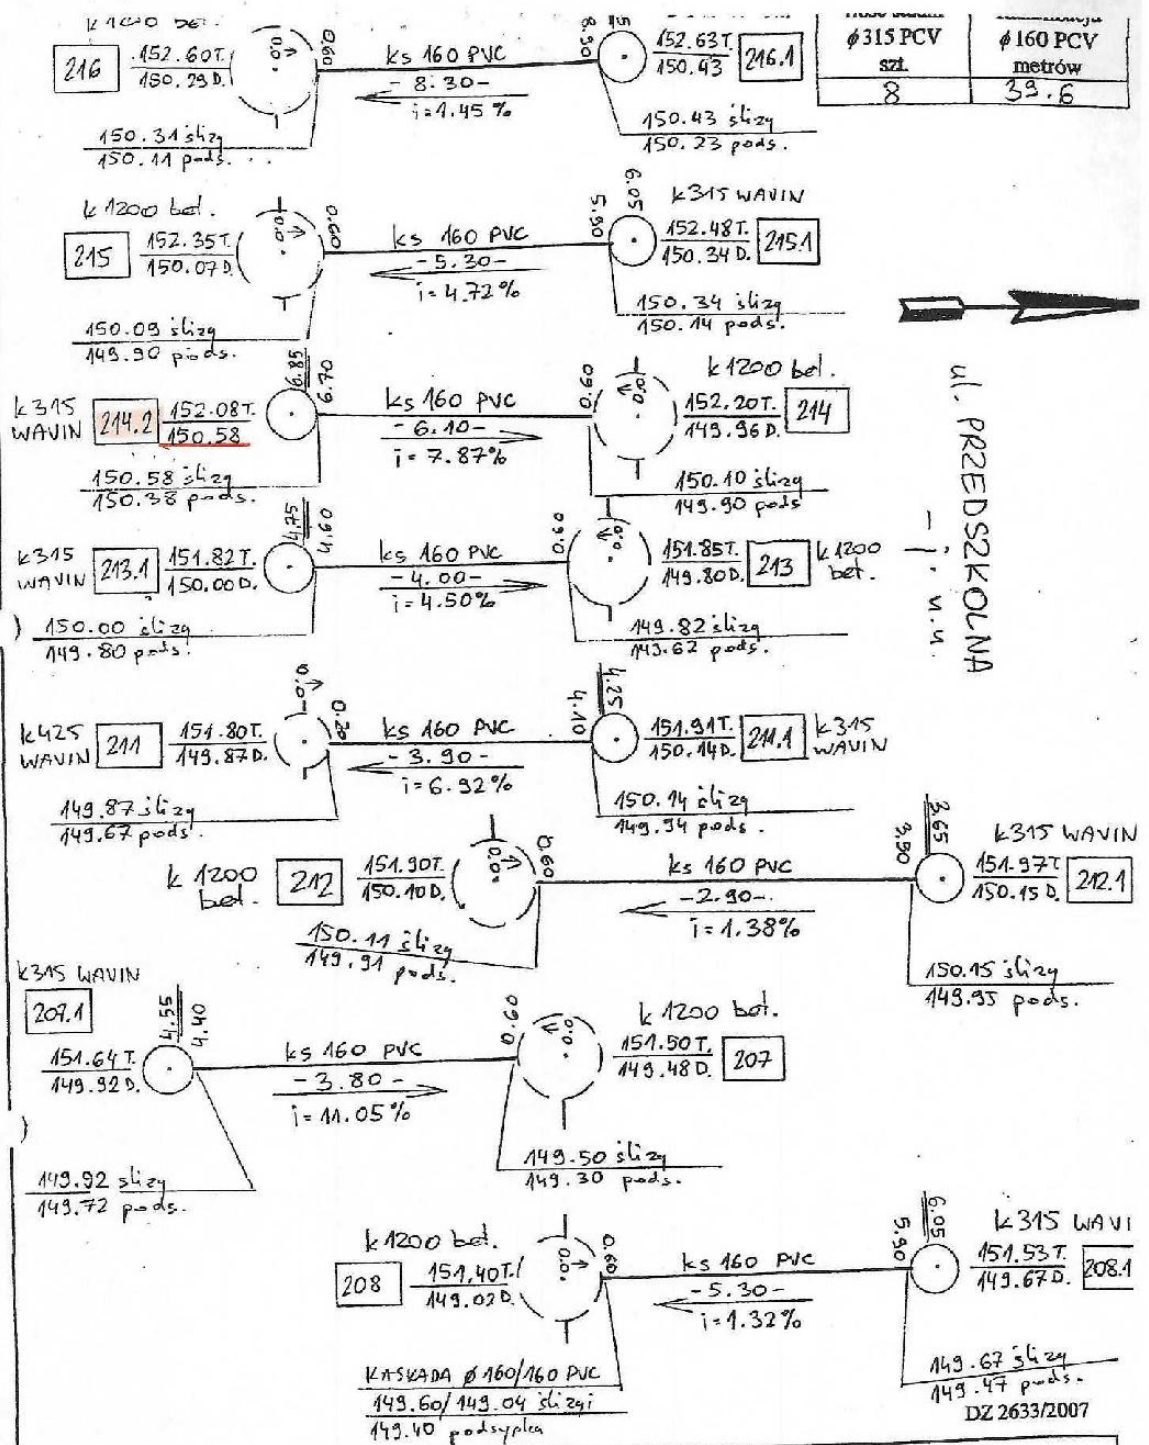 k 1200 bet.
216
152.60T.
150.29D.
0.0
0.60
ks 160 PVC
- 8.30 -
i=1.45 %
8.90
152.63T.
150.43
216.1
150.31 ślizg
150.11 pods.
150.43 ślizg
150.23 pods.
ϕ315 PCV
szt.
8
ϕ160 PCV
metrów
39.6
k 1200 bet.
215
152.35T.
150.07D.
0.0
0.60
ks 160 PVC
- 5.30 -
i=4.72%
5.90
6.05
k315 WAVIN
152.48T.
150.34D.
215.1
150.09 ślizg
149.90 pods.
150.34 ślizg
150.14 pods.
k315
WAVIN
214.2
152.08T.
150.58
6.85
6.70
ks 160 PVC
- 6.10 -
i=7.87%
0.60
0.0
k 1200 bet.
152.20T.
149.96D.
214
150.58 ślizg
150.38 pods.
150.10 ślizg
149.90 pods
ul. PRZEDSZKOLNA
k315
WAVIN
213.1
151.82T.
150.00D.
4.75
4.60
ks 160 PVC
- 4.00 -
i=4.50%
0.60
0.0
151.85T.
149.80D.
213
k 1200
bet.
150.00 ślizg
149.80 pods.
149.82 ślizg
149.62 pods.
k425
WAVIN
211
151.80T.
149.87D.
0.0
0.20
ks 160 PVC
- 3.90 -
i=6.92%
4.10
4.25
151.91T.
150.14D.
211.1
k315
WAVIN
149.87 ślizg
149.67 pods.
150.14 ślizg
149.94 pods.
k 1200
bet.
212
151.90T.
150.10D.
0.0
0.60
ks 160 PVC
- 2.90 -
i=1.38%
3.90
3.65
k315 WAVIN
151.97T.
150.15D.
212.1
150.11 ślizg
149.91 pods.
150.15 ślizg
149.95 pods.
k315 WAVIN
207.1
151.64T.
149.92D.
4.55
4.40
ks 160 PVC
- 3.80 -
i=11.05%
0.60
0.0
k 1200 bet.
151.50T.
149.48D.
207
149.92 ślizg
149.72 pods.
149.50 ślizg
149.30 pods.
k 1200 bet.
208
151.40T.
149.02D.
0.0
0.60
ks 160 PVC
- 5.30 -
i=1.32%
5.90
6.05
k315 WAVI
151.53T.
149.67D.
208.1
KASKADA ϕ 160/160 PVC
149.60/149.04 ślizgi
149.40 podsypka
149.67 ślizg
149.47 pods.
DZ 2633/2007